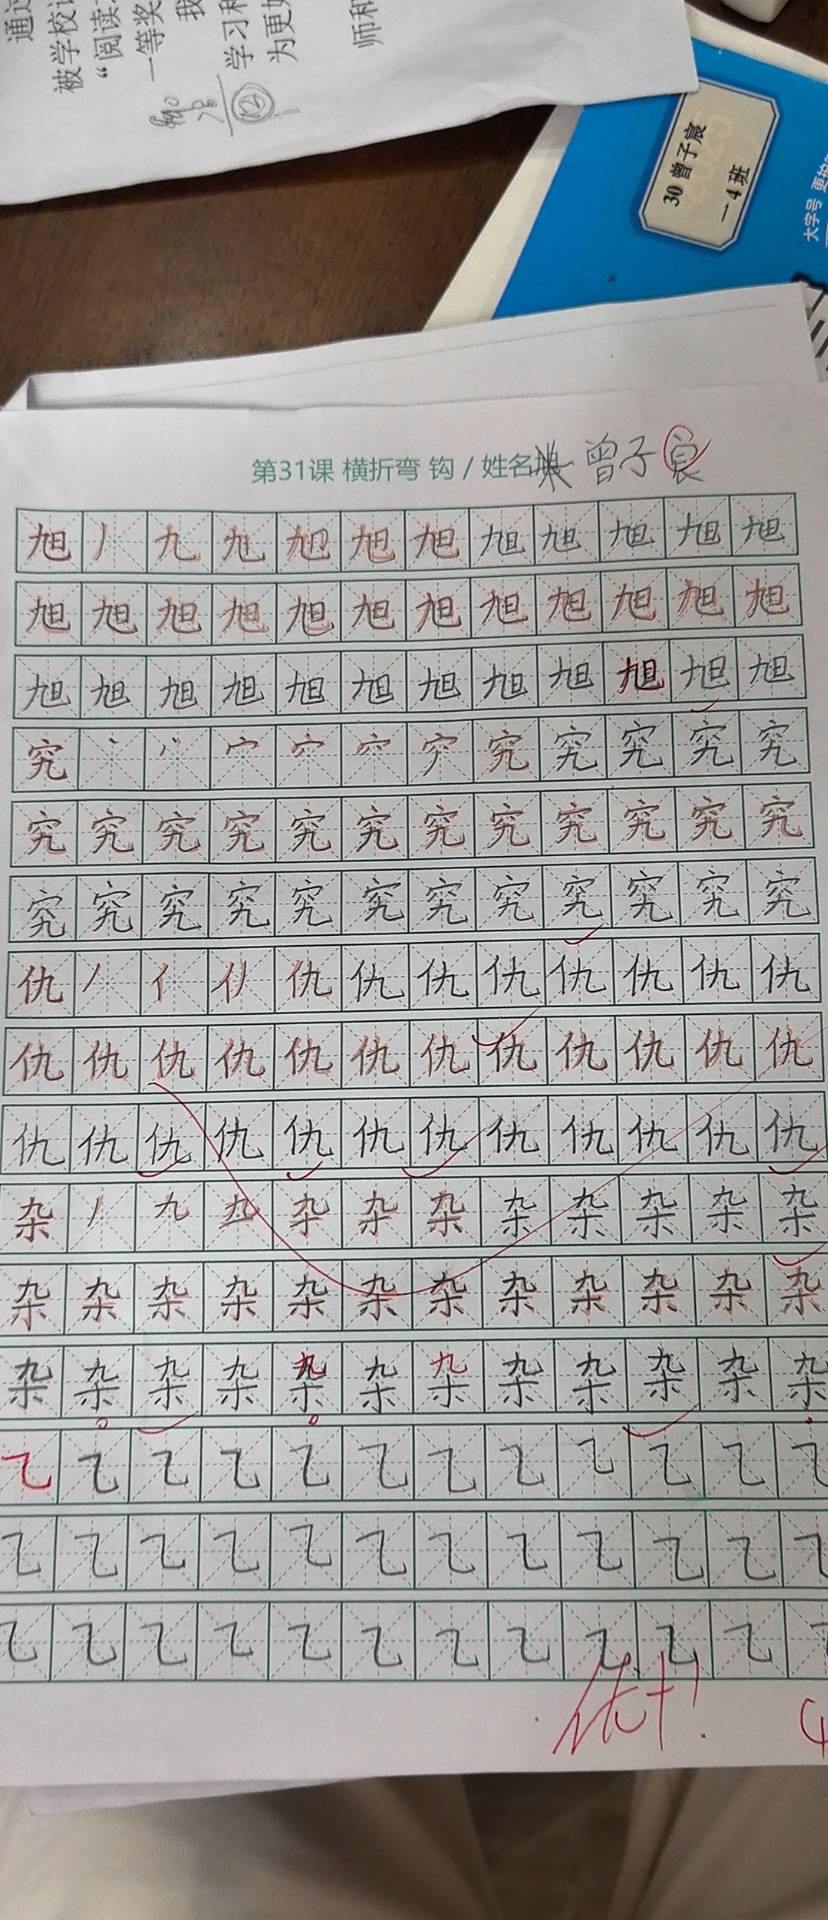 通过
被学校
“阅读
一等奖
我
学习和
为更好
师和
30 曾子宸
一4班
大字号 更护
第31课 横折弯 钩 / 姓名 曾子宸
旭 丿 九 九 旭 旭 旭 旭 旭 旭 旭 旭
旭 旭 旭 旭 旭 旭 旭 旭 旭 旭 旭 旭
旭 旭 旭 旭 旭 旭 旭 旭 旭 旭 旭 旭
究 丶 丷 宀 宀 穴 穴 究 究 究 究 究
究 究 究 究 究 究 究 究 究 究 究 究
究 究 究 究 究 究 究 究 究 究 究 究
仇 丿 亻 仇 仇 仇 仇 仇 仇 仇 仇
仇 仇 仇 仇 仇 仇 仇 仇 仇 仇 仇 仇
仇 仇 仇 仇 仇 仇 仇 仇 仇 仇 仇 仇
杂 丿 九 杂 杂 杂 杂 杂 杂 杂 杂
杂 杂 杂 杂 杂 杂 杂 杂 杂 杂 杂 杂
杂 杂 杂 杂 杂 杂 杂 杂 杂 杂 杂 杂
乙 乙 乙 乙 乙 乙 乙 乙 乙 乙 乙 乙
乙 乙 乙 乙 乙 乙 乙 乙 乙 乙 乙 乙
乙 乙 乙 乙 乙 乙 乙 乙 乙 乙 乙 乙
优+!